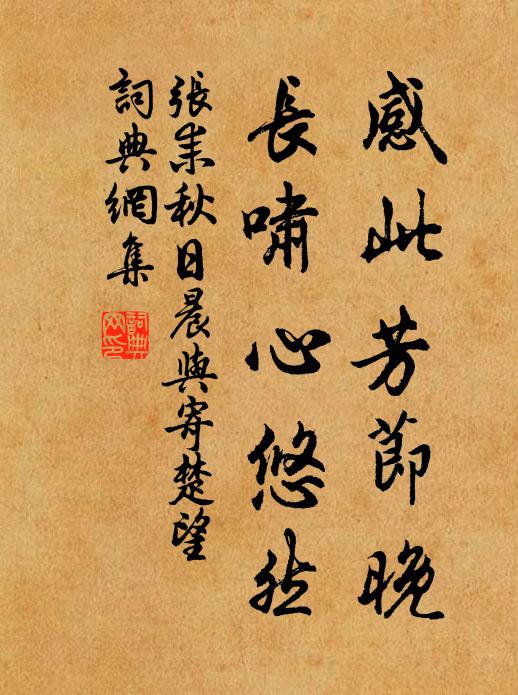 感此芳節晚
長嘯心悠然
張耒秋日晨興寄楚望
詞典網集
詞典網印